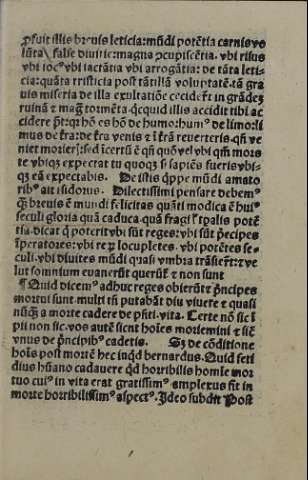 ꝓfuit illis breuis leticia: mūdi potētia carnis vo
lūta\ false diuitie: magna ꝯcupiscētia. vbi risus
vbi iocꝰ vbi iactātia vbi arrogātia: de tāta leti-
cia: quāta tristicia post tātillā voluptatē. tā gra
uis miseria de illa exultatiōe ceciderūt in grādez
ruinā ⁊ mag̃ tormēta. qcquid illis accidit tibi ac
cidere pōt: qꝛ hō es hō de humo: humꝰ de limo: li
mus de fra: de fra venis ⁊ ī frā reuerteris. qñ ve
niet morieris: sed īcertū ē qñ quō vel vbi qm̄ mors
te vbiqꝫ expectat tu quoqꝫ si sapiēs fueris vbi-
qꝫ eā expectabis. De istis q̄ppe mūdi amato
ribꝰ ait isidorus. Dilectissimi pensare debemꝰ
q̄ breuis ē mundi felicitas quāti modica ē huiꝰ
seculi gloria quā caduca. quā fragiſ tꝑalis potē
tia. dicat q poterit vbi sūt reges: vbi sūt p̄ncipes
īperatores: vbi reꝝ locupletes. vbi potētes se-
culi. vbi diuites mūdi quasi vmbra trāsierūt: ⁊ ve
lut somnium euanerūt querūt̄ ⁊ non sunt
¶ Quid dicemꝰ adhuc reges obierūt p̄ncipes
mortui sunt multi tñ putabāt diu viuere ⁊ quasi
nūq̄ a morte cadere de p̄nti vita. Certe nō sic ī
pii non sic. vos autē sicut hoīes moriemini ⁊ sic̄
vnus de p̄ncipibꝰ cadetis. Sꝫ de cōditione
hoīs post mortē hec inqd bernardus. Quid feti
dius hūano cadauere qd horribilis homīe mor
tuo cuiꝰ in vita erat gratissimꝰ amplexus fit in
morte horribilissimꝰ aspectꝰ. Ideo subdit Post